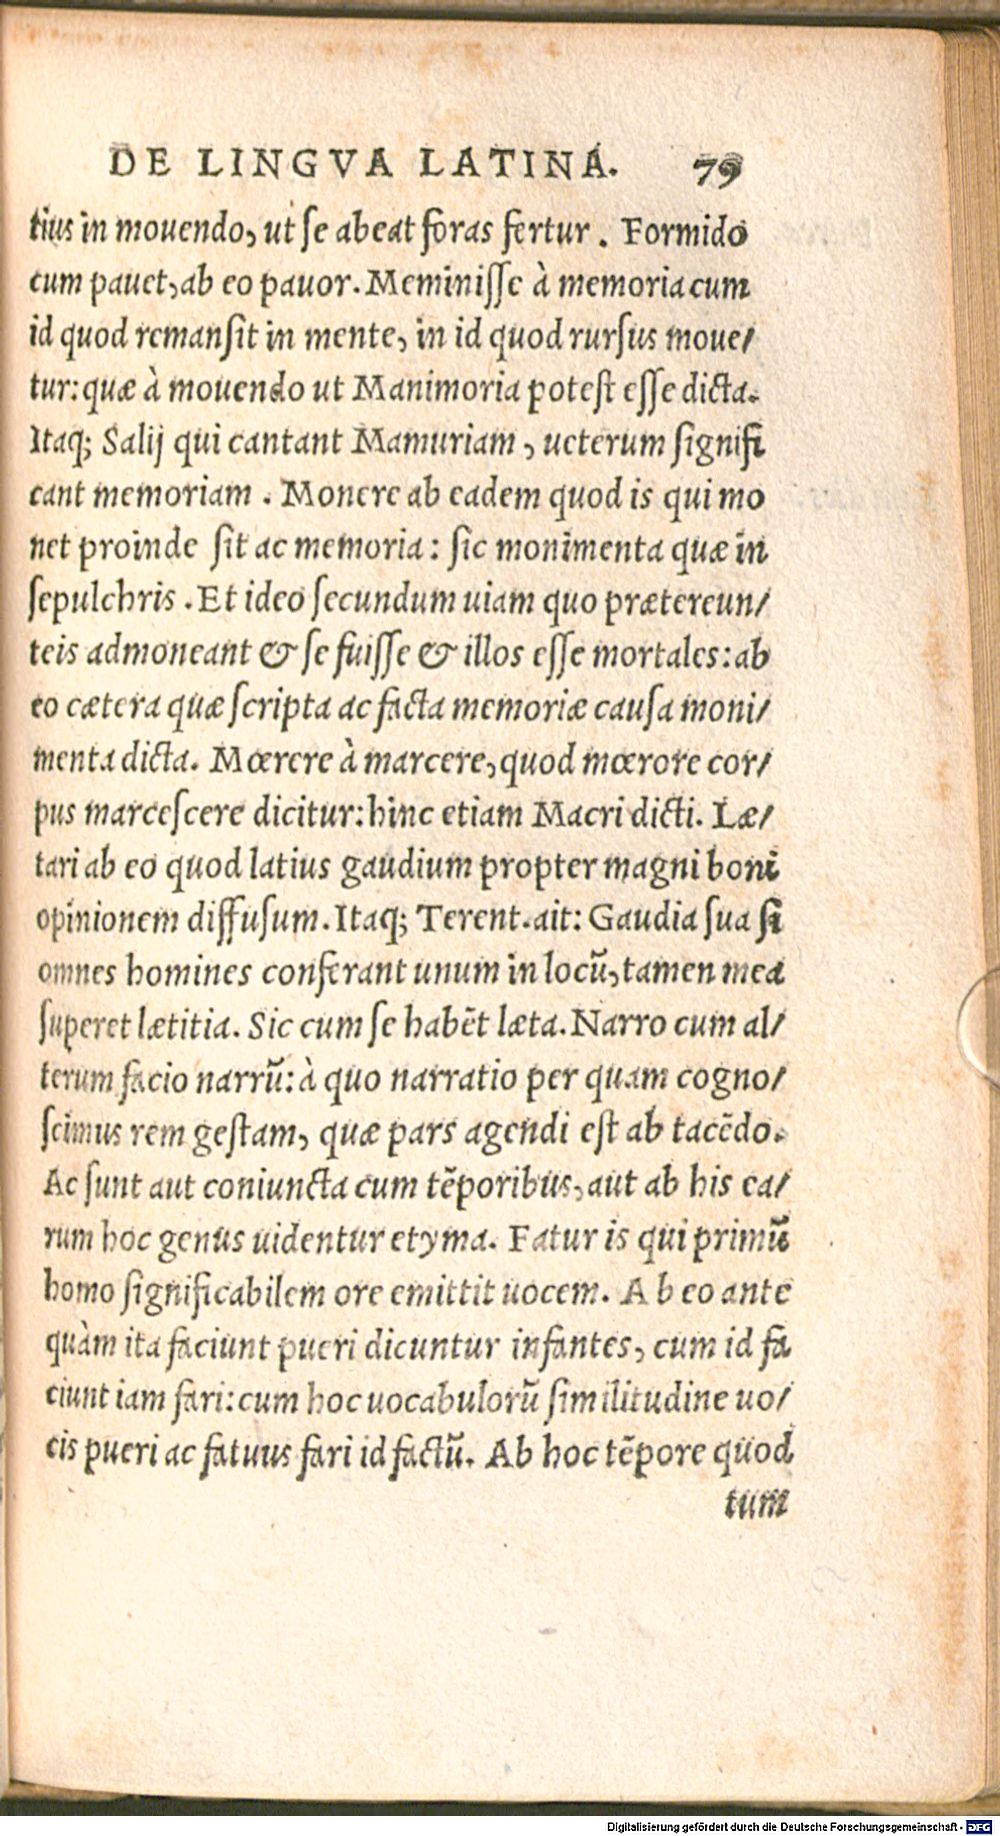 DE LINGVA LATINA. 79
tius in mouendo, ut se abeat foras fertur. Formido
cum pauet, ab eo pauor. Meminisse à memoria cum
id quod remansit in mente, in id quod rursus moue/
tur: quæ à mouendo ut Manimoria potest esse dicta.
Itaq; Salij qui cantant Mamuriam, ueterum signifi
cant memoriam. Monere ab eadem quod is qui mo
net proinde sit ac memoria: sic monimenta quæ in
sepulchris. Et ideo secundum uiam quo prætereun/
teis admoneant & se fuisse & illos esse mortales: ab
eo cætera quæ scripta ac facta memoriæ causa moni/
menta dicta. Mœrere à marcere, quod mœrore cor/
pus marcescere dicitur: hinc etiam Macri dicti. Læ/
tari ab eo quod latius gaudium propter magni boni
opinionem diffusum. Itaq; Terent. ait: Gaudia sua si
omnes homines conferant unum in locū, tamen mea
superet lætitia. Sic cum se habēt læta. Narro cum al/
terum facio narrū: à quo narratio per quam cogno/
scimus rem gestam, quæ pars agendi est ab tacēdo.
Ac sunt aut coniuncta cum tēporibus, aut ab his ea/
rum hoc genus uidentur etyma. Fatur is qui primū
homo significabilem ore emittit uocem. Ab eo ante
quàm ita faciunt pueri dicuntur infantes, cum id fa
ciunt iam fari: cum hoc uocabulorū similitudine uo/
cis pueri ac fatuus fari id factū. Ab hoc tēpore quod
tum
Digitalisierung gefördert durch die Deutsche Forschungsgemeinschaft - DFG